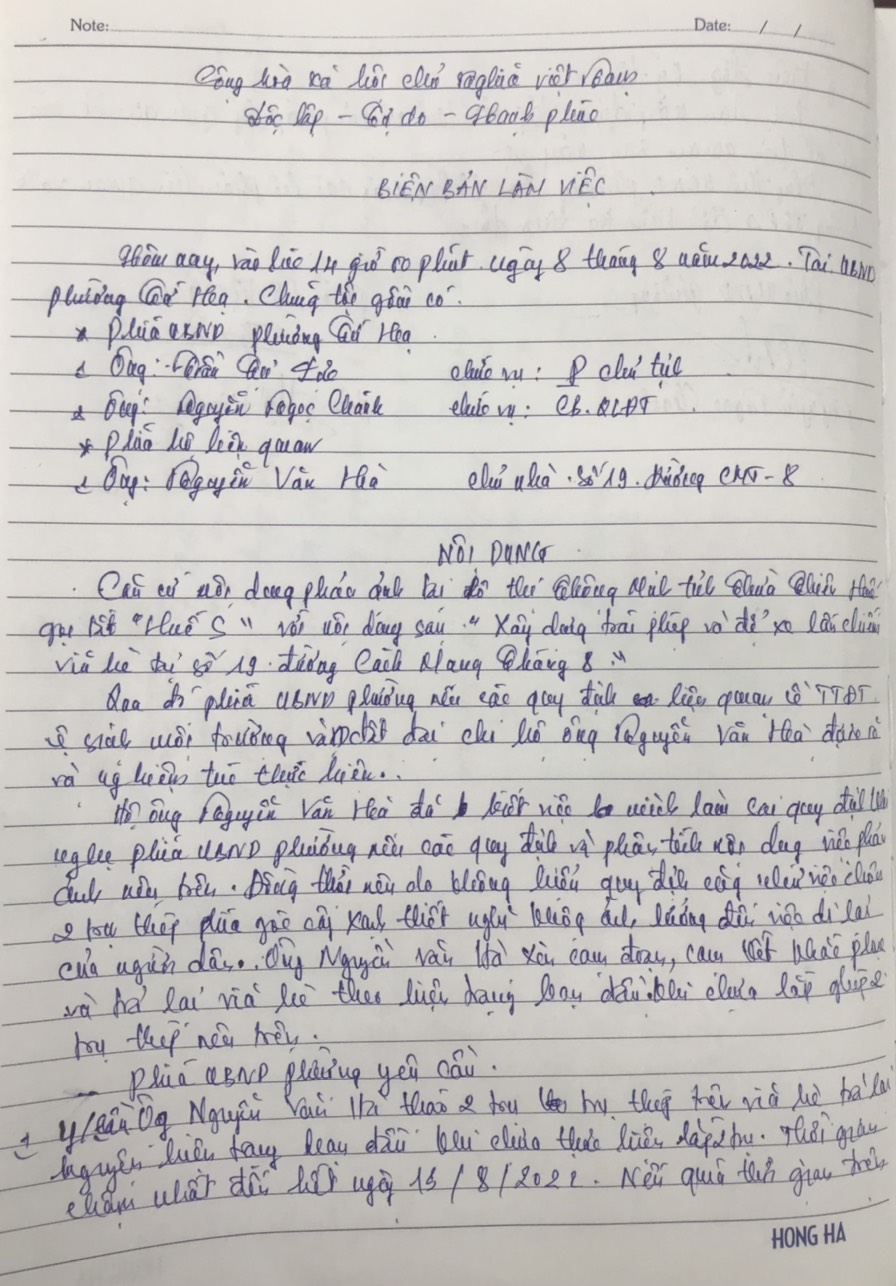 Note: Date: / /
Cộng hòa xã hội chủ nghĩa việt Nam
Độc lập - Tự do - Hạnh phúc
BIÊN BẢN LÀM VIỆC
Hôm nay, vào lúc 14 giờ 00 phút ngày 8 tháng 8 năm 2022. Tại UBND
phường Tứ Hạ. Chúng tôi gồm có.
* Phía UBND phường Tứ Hạ.
+ Ông: Trần chức vụ: P chủ tịch
+ Ông: Nguyễn Ngọc Chánh chức vụ: CB. QLĐT.
* Phía hộ liên quan
+ Ông: Nguyễn Văn Hà chủ nhà. Số 19. đường CMT-8
NỘI DUNG
Căn cứ nội dung phản ánh tại đô thị thông minh tỉnh Thừa Thiên Huế
gọi tắt "Huế S" với nội dung sau "Xây dựng trái phép và để xe lấn chiếm
vỉa hè tại số 19. đường Cách Mạng Tháng 8."
Qua đó phía UBND phường nêu các quy định liên quan về TTĐT.
vệ sinh môi trường và đất đai cho hộ ông Nguyễn Văn Hà được rõ
và nghiêm túc thực hiện..
Hộ ông Nguyễn Văn Hà đã biết việc mình làm sai quy định khi
nghe phía UBND phường nêu các quy định và phân tích nội dung việc phản
ánh nêu trên. Đồng thời nêu do không hiểu quy định cũng như việc chôn
2 trụ thép phía gốc cây xanh thiết nghĩ không ảnh hưởng đến việc đi lại
của người dân.. Ông Nguyễn văn Hà xin cam đoan, cam kết khắc phục
và trả lại vỉa hè theo hiện trạng ban đầu khi chưa lắp ghép 2
trụ thép nêu trên.
- Phía UBND phường yêu cầu.
+ Y/cầu Ông Nguyễn Văn Hà tháo 2 trụ thép trên vỉa hè trả lại
nguyên hiện trạng ban đầu khi chưa thực hiện lắp 2 trụ. Thời gian
chậm nhất đến hết ngày 15/8/2022. Nếu quá thời gian trên
HONG HA